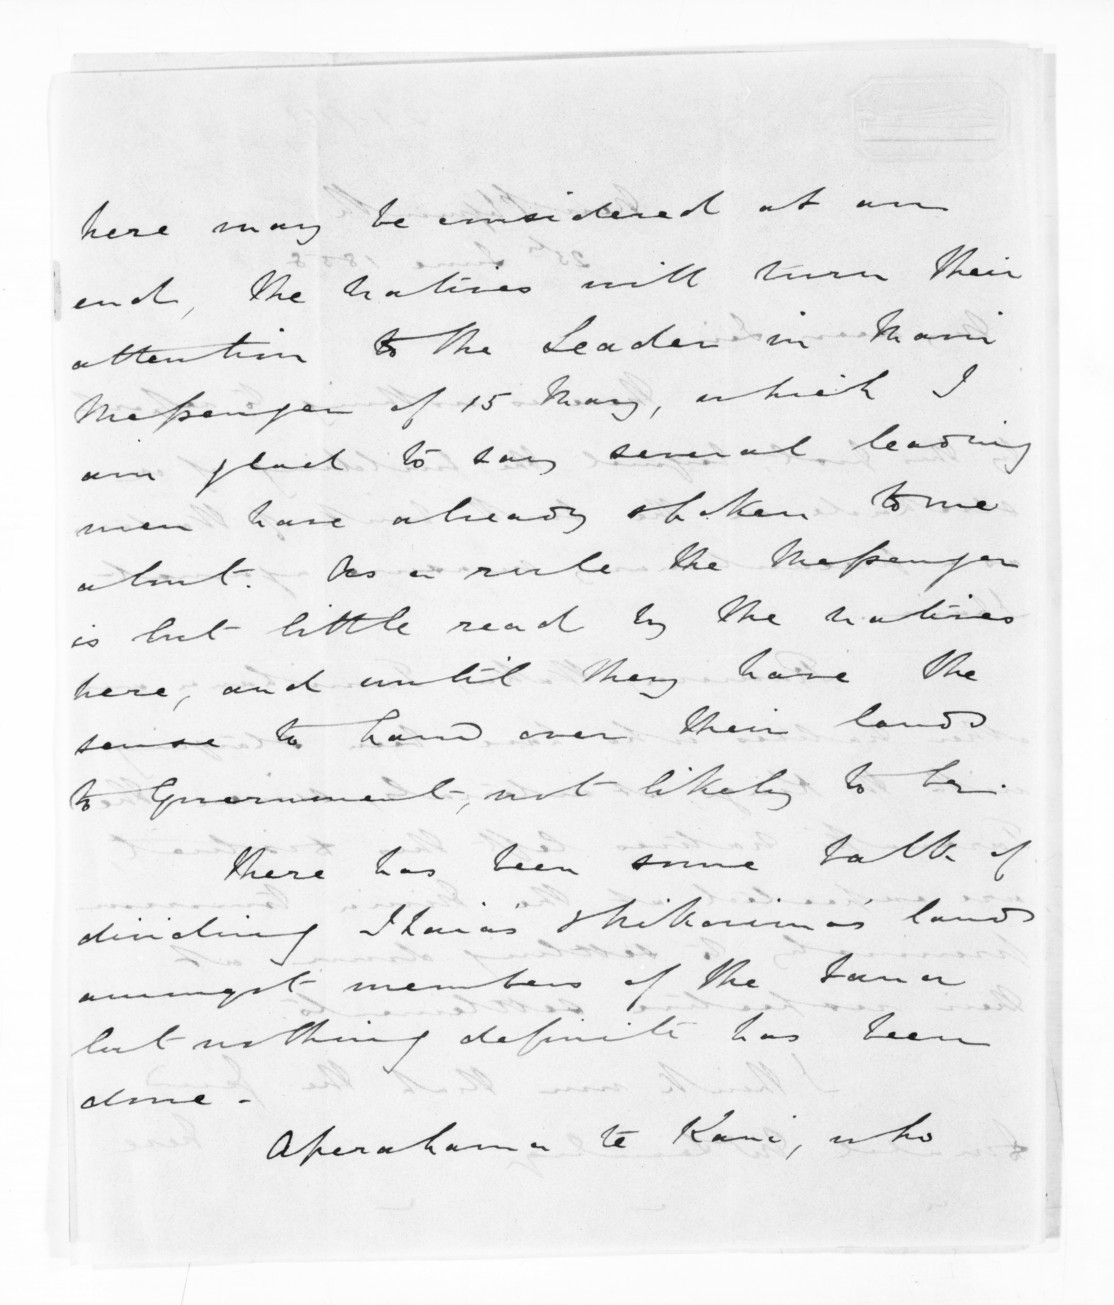 here may be considered at an
end, the natives will turn their
attention to the Leader in Maori
Messenger of 15 May, which I
am glad to say several leading
men have already spoken to me
about. As a rule the Messenger
is but little read by the natives
here, and until they have the
sense to hand over their lands
to Government, not likely to be.
There has been some talk of
dividing Ihaia's & Nikorima's lands
amongst members of the
but nothing definite has been
done -
Aperahama te Kani, who